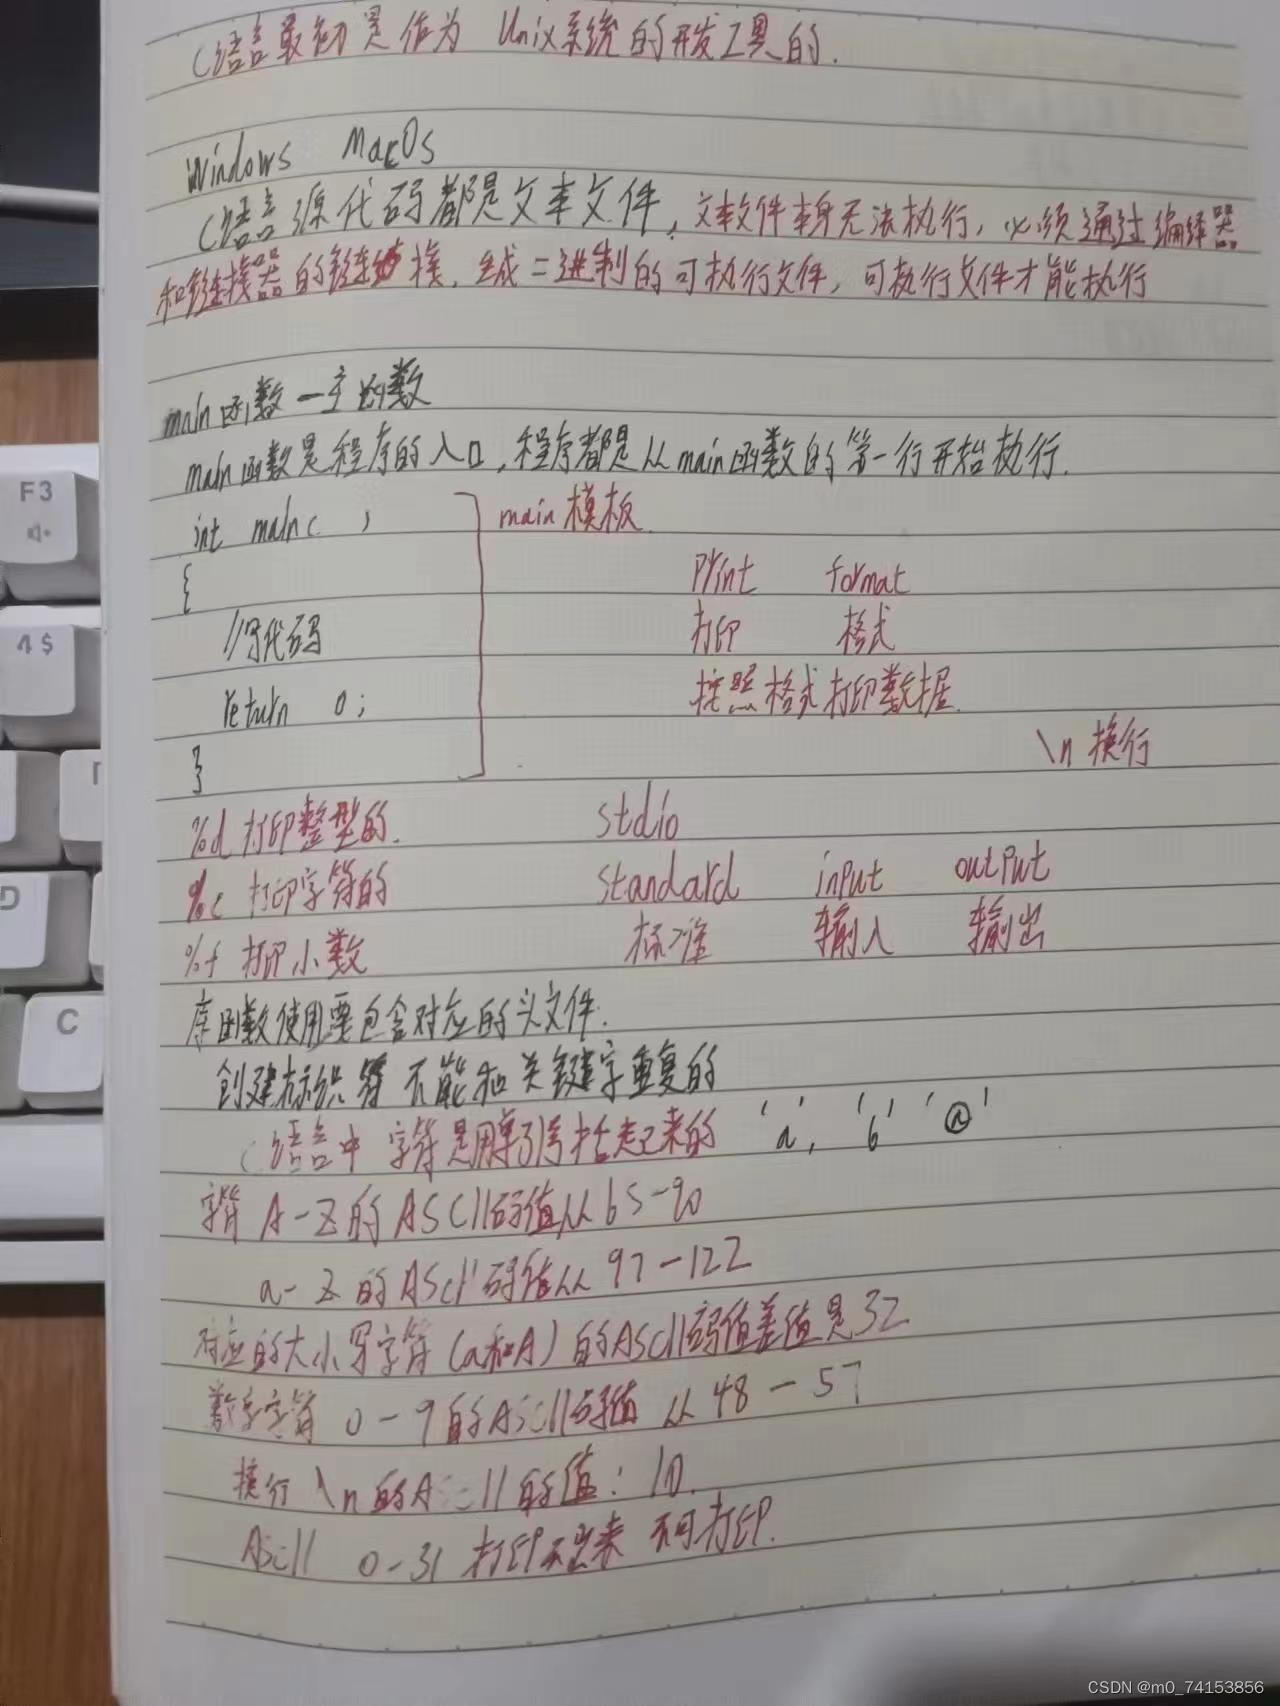 C语言最初是作为 Unix系统的开发工具的.
Windows MacOs
C语言源代码都是文本文件,文本文件本身无法执行,必须通过编译器
和链接器的链接,生成二进制的可执行文件,可执行文件才能执行
main函数—主函数
main函数是程序的入口,程序都是从main函数的第一行开始执行.
int main( )
main模板
{
print format
//写代码
打印 格式
return 0;
按照格式打印数据.
}
\n 换行
%d 打印整型的.
stdio
%c 打印字符的
standard input output
%f 打印小数
标准 输入 输出
库函数使用要包含对应的头文件.
创建标识符不能和关键字重复的
C语言中 字符是用单引号括起来的 'a', 'b' '@'
字符 A-Z的ASCII码值从65-90
a-z的ASCII码值从97-122
对应的大小写字符(a和A)的ASCII码值差值是32
数字字符 0-9的ASCII码值从48-57
换行 \n的ASCII的值:10.
ASCII 0-31 打印不出来 不可打印.
F3
4 $
D
C
CSDN @m0_74153856